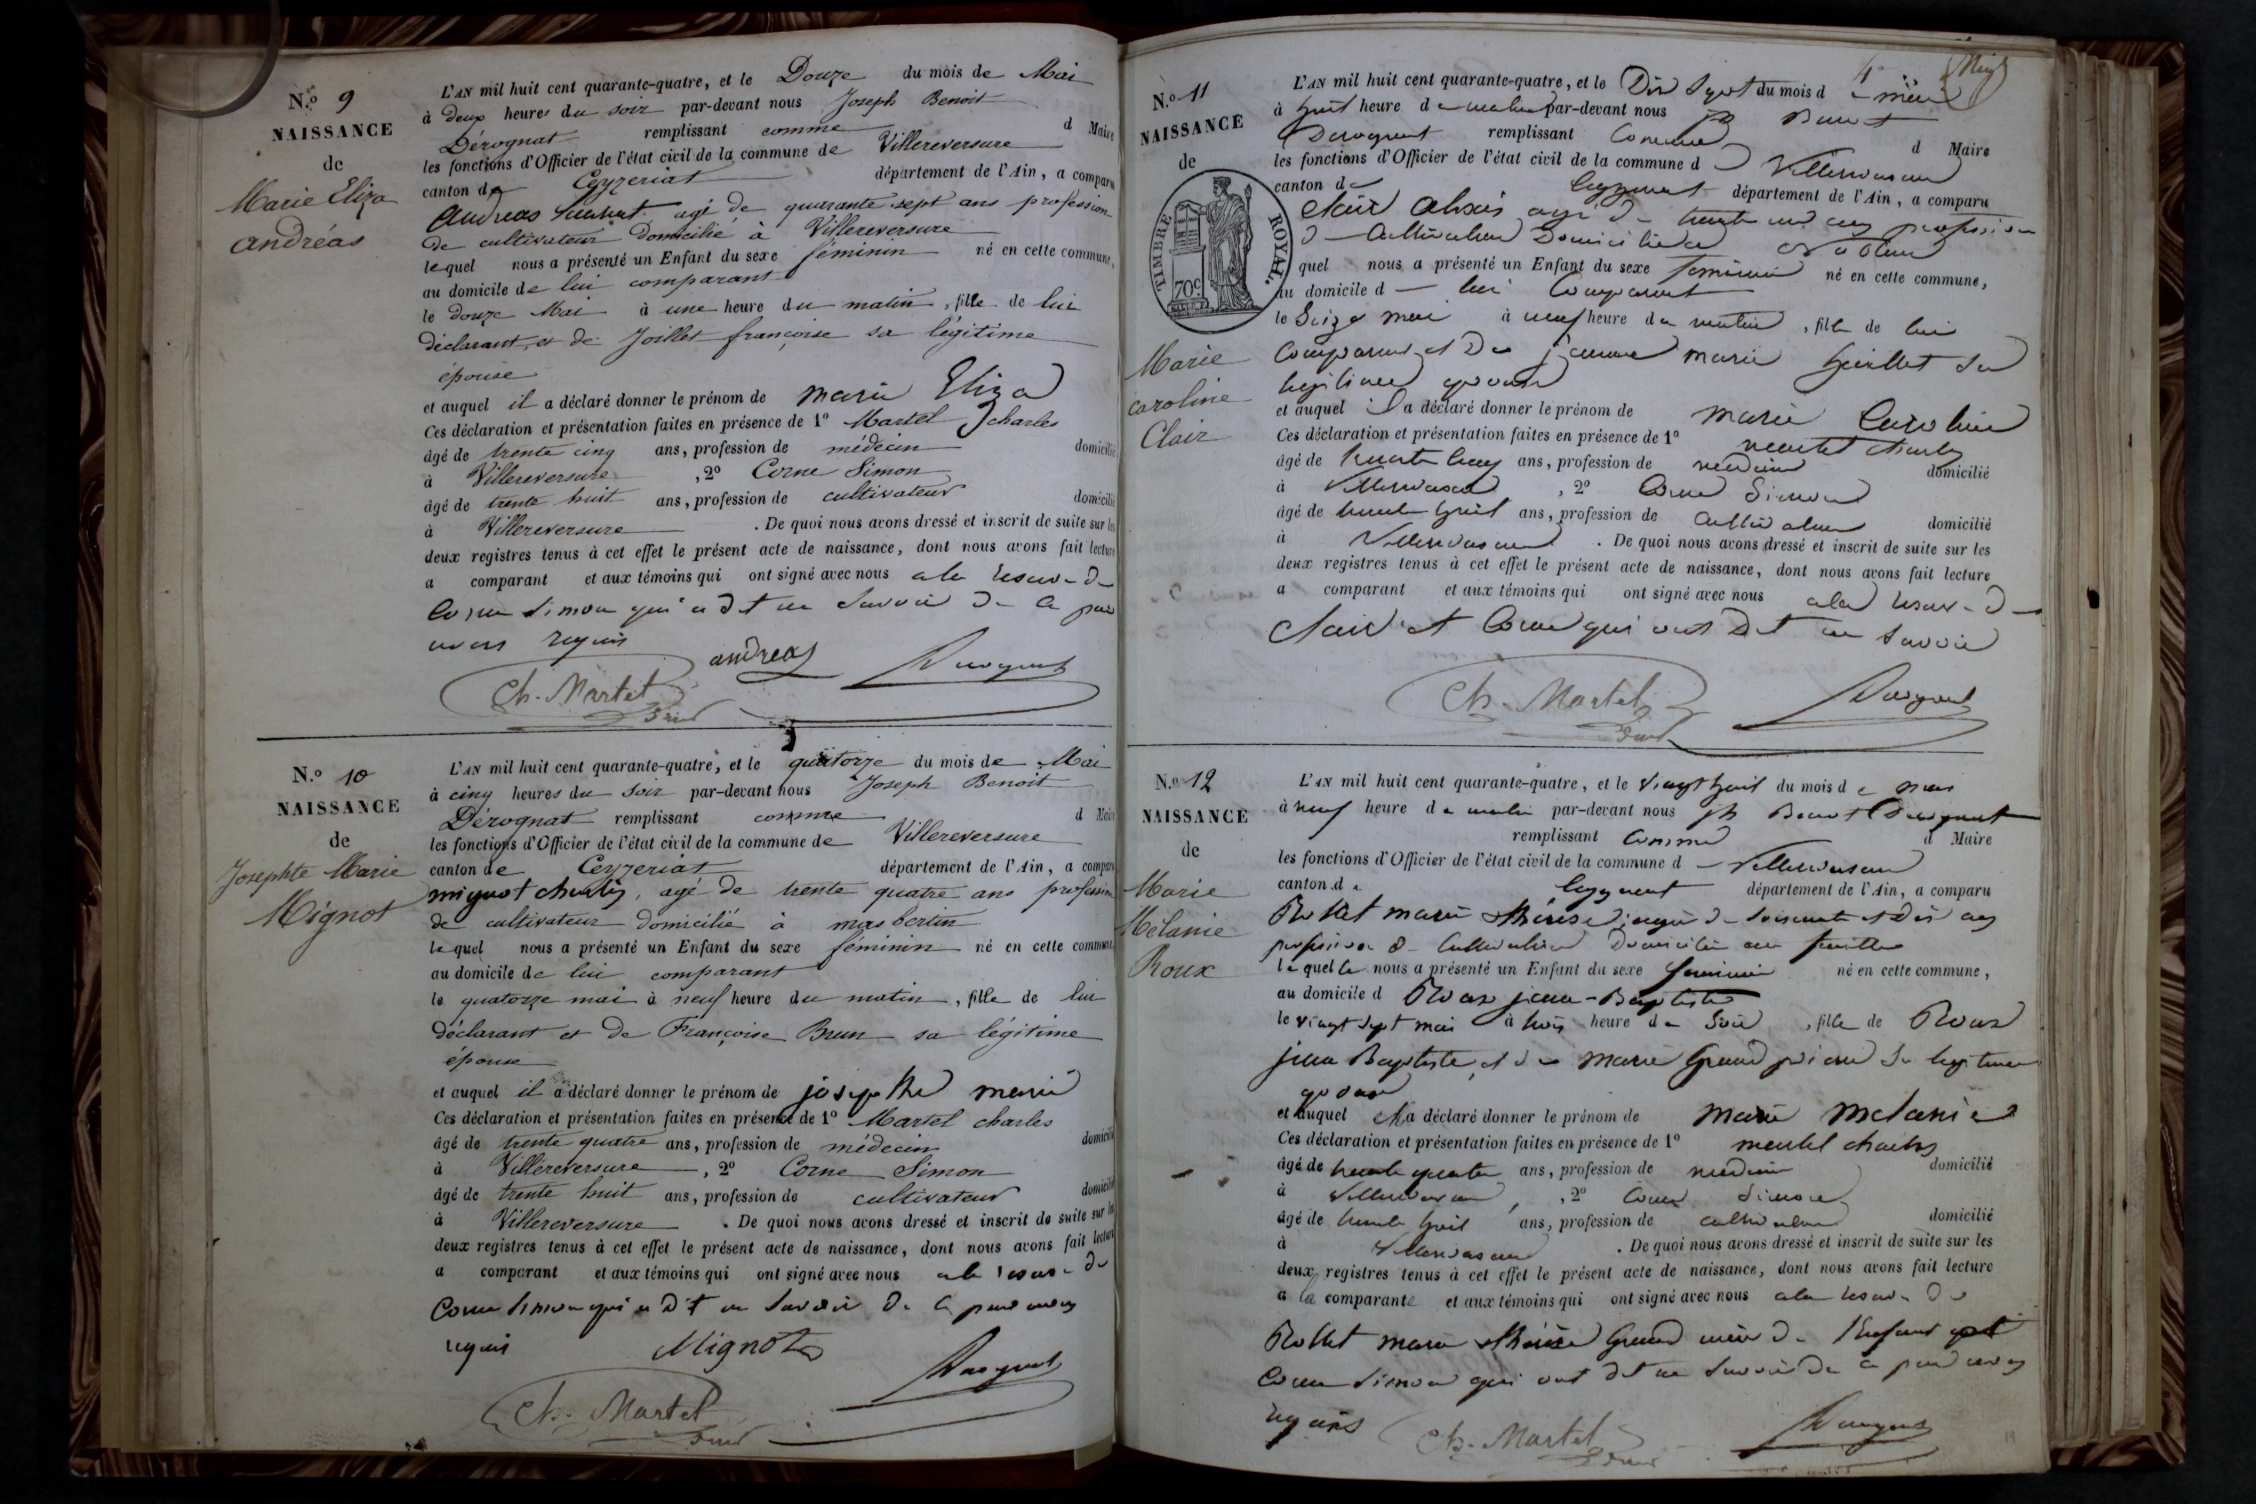 N.º 9
NAISSANCE
de
Marie Eliza
andréas
L'AN mil huit cent quarante-quatre, et le Douze du mois de Mai
à deux heures du soir par-devant nous Joseph Benoit
Dérognat remplissant comme d Maire
les fonctions d'Officier de l'état civil de la commune de Villereversure
canton de Ceyzeriat département de l'Ain, a comparu
andréas agé de quarante sept ans profession
de cultivateur domicilié à Villereversure
lequel nous a présenté un Enfant du sexe féminin né en cette commune,
au domicile de lui comparant
le douze Mai à une heure du matin, fille de lui
déclarant et de Joillet françoise sa légitime
épouse
et auquel il a déclaré donner le prénom de marie Eliza
Ces déclaration et présentation faites en présence de 1º Martel charles
âgé de trente cinq ans, profession de médecin domicilié
à Villereversure, 2º Corne Simon
âgé de trente huit ans, profession de cultivateur domicilié
à Villereversure. De quoi nous avons dressé et inscrit de suite sur les
deux registres tenus à cet effet le présent acte de naissance, dont nous avons fait lecture
a comparant et aux témoins qui ont signé avec nous a la reserve de
Corne Simon qui a dit ne savoir de ce faire
requis
andréas
Ch. Martel
N.º 10
NAISSANCE
de
Josephte Marie
Mignot
L'AN mil huit cent quarante-quatre, et le quatorze du mois de Mai
à cinq heures du soir par-devant nous Joseph Benoit
Dérognat remplissant comme d Maire
les fonctions d'Officier de l'état civil de la commune de Villereversure
canton de Ceyzeriat département de l'Ain, a comparu
mignot charles, agé de trente quatre ans profession
de cultivateur domicilié à mas bertin
lequel nous a présenté un Enfant du sexe féminin né en cette commune,
au domicile de lui comparant
le quatorze mai à neuf heure du matin, fille de lui
déclarant et de Françoise Brun sa légitime
épouse
et auquel il a déclaré donner le prénom de josephte marie
Ces déclaration et présentation faites en présence de 1º Martel charles
âgé de trente quatre ans, profession de médecin domicilié
à Villereversure, 2º Corne Simon
âgé de trente huit ans, profession de cultivateur domicilié
à Villereversure. De quoi nous avons dressé et inscrit de suite sur les
deux registres tenus à cet effet le présent acte de naissance, dont nous avons fait lecture
a comparant et aux témoins qui ont signé avec nous a la reserve de
Corne Simon qui a dit ne savoir de ce
requis
Mignot
Ch. Martel
N.º 11
NAISSANCE
de
TIMBRE ROYAL.
70c
Marie
caroline
Clair
L'AN mil huit cent quarante-quatre, et le Dix Sept du mois de mai
à huit heure du matin par-devant nous Jh Benoit
Derognat remplissant Comme d Maire
les fonctions d'Officier de l'état civil de la commune d Villereversure
canton de Ceyzeriat département de l'Ain, a comparu
Clair alexis agé de trente ans profession
de Cultivateur Domicilié a
quel nous a présenté un Enfant du sexe feminin né en cette commune,
au domicile de lui Comparant
le Seize mai à neuf heure du matin, fille de lui
Comparant et De jeanne marie sa
legitime epouse
et auquel il a déclaré donner le prénom de marie Caroline
Ces déclaration et présentation faites en présence de 1º martel charles
âgé de trente cinq ans, profession de medecin domicilié
à Villereversure, 2º Corne Simon
âgé de trente huit ans, profession de cultivateur domicilié
à Villereversure. De quoi nous avons dressé et inscrit de suite sur les
deux registres tenus à cet effet le présent acte de naissance, dont nous avons fait lecture
a comparant et aux témoins qui ont signé avec nous a la reserve de
Clair et Corne qui ont Dit ne Savoir
Ch. Martel
N.º 12
NAISSANCE
de
Marie
Mélanie
Roux
L'AN mil huit cent quarante-quatre, et le vingt huit du mois de mai
à neuf heure du matin par-devant nous Jh Benoit Derognat
remplissant Comme d Maire
les fonctions d'Officier de l'état civil de la commune d Villereversure
canton de Ceyzeriat département de l'Ain, a comparu
Rollet marie thérese agée de soixante et dix ans
profession de Cultivateur Domiciliée
laquelle nous a présenté un Enfant du sexe feminin né en cette commune,
au domicile d Roux jean-Baptiste
le vingt sept mai à trois heure du Soir, fille de Roux
jean Baptiste, et de marie Grand pierre Sa legitime
epouse
et auquel elle a déclaré donner le prénom de marie melanie
Ces déclaration et présentation faites en présence de 1º martel charles
âgé de trente quatre ans, profession de medecin domicilié
à Villereversure, 2º Corne Simon
âgé de trente huit ans, profession de cultivateur domicilié
à Villereversure. De quoi nous avons dressé et inscrit de suite sur les
deux registres tenus à cet effet le présent acte de naissance, dont nous avons fait lecture
a la comparante et aux témoins qui ont signé avec nous a la reserve de
Rollet marie thérese Grand mère de l'Enfant et
Corne Simon qui ont dit ne Savoir De ce
requis
Ch. Martel